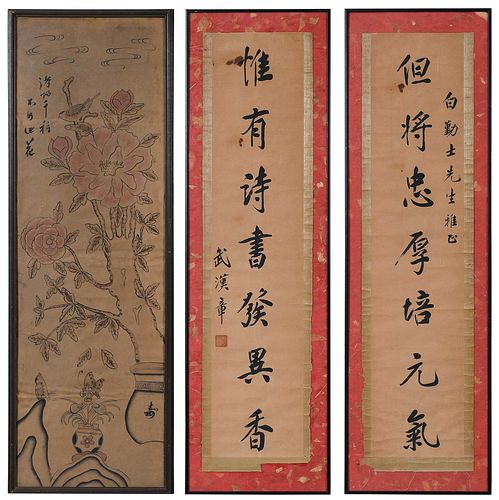 白勤士先生雅正
但將忠厚培元氣
惟有詩書發異香
武漢章
千種